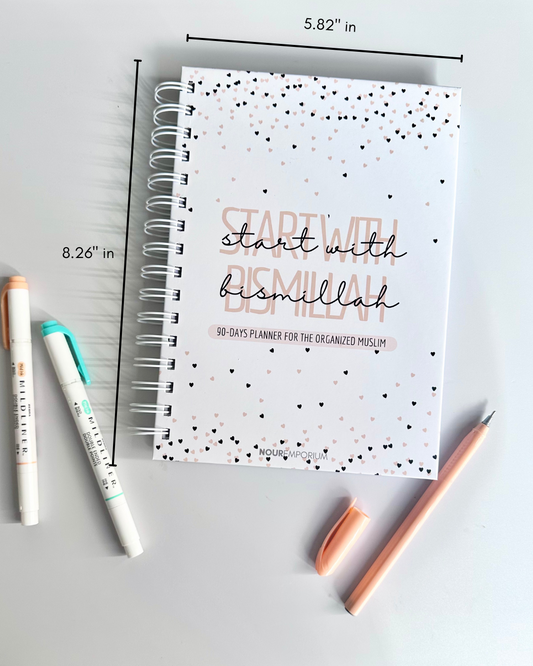 5.82" in
8.26" in
START WITH
start with
BISMILLAH
bismillah
90-DAYS PLANNER FOR THE ORGANIZED MUSLIM
NOUREMPORIUM
MILDLINER.
MILDLINER.